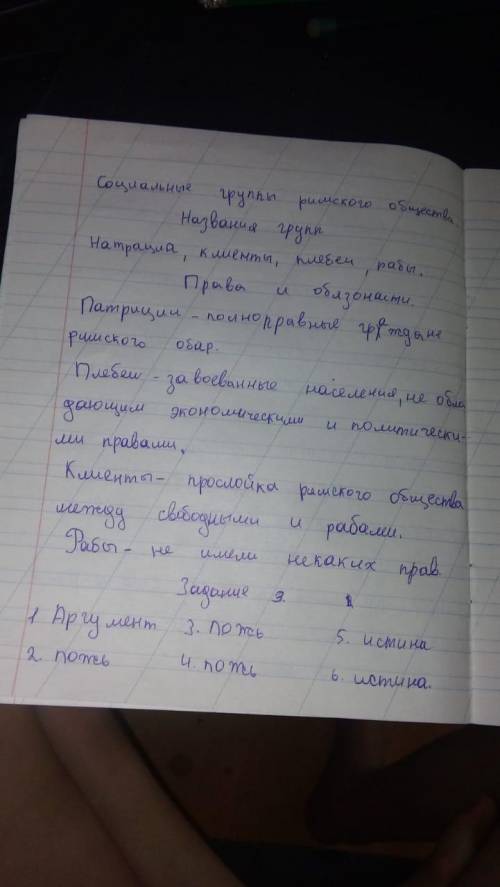 Социальные группы римского общества
Названия групп
Натрациа, клиенты, плебеи, рабы.
Права и обязоности.
Патриции - полноправные граждане
римского обар.
Плебеи - завоеванные населения, не обла
дающим экономическими и политически-
ми правами.
Клиенты - прослойка римского общества
между свободными и рабами.
Рабы - не имели некаких прав
Задание 3.
1 Аргумент 3. ложь 5. истина
2. ложь 4. ложь 6. истина.